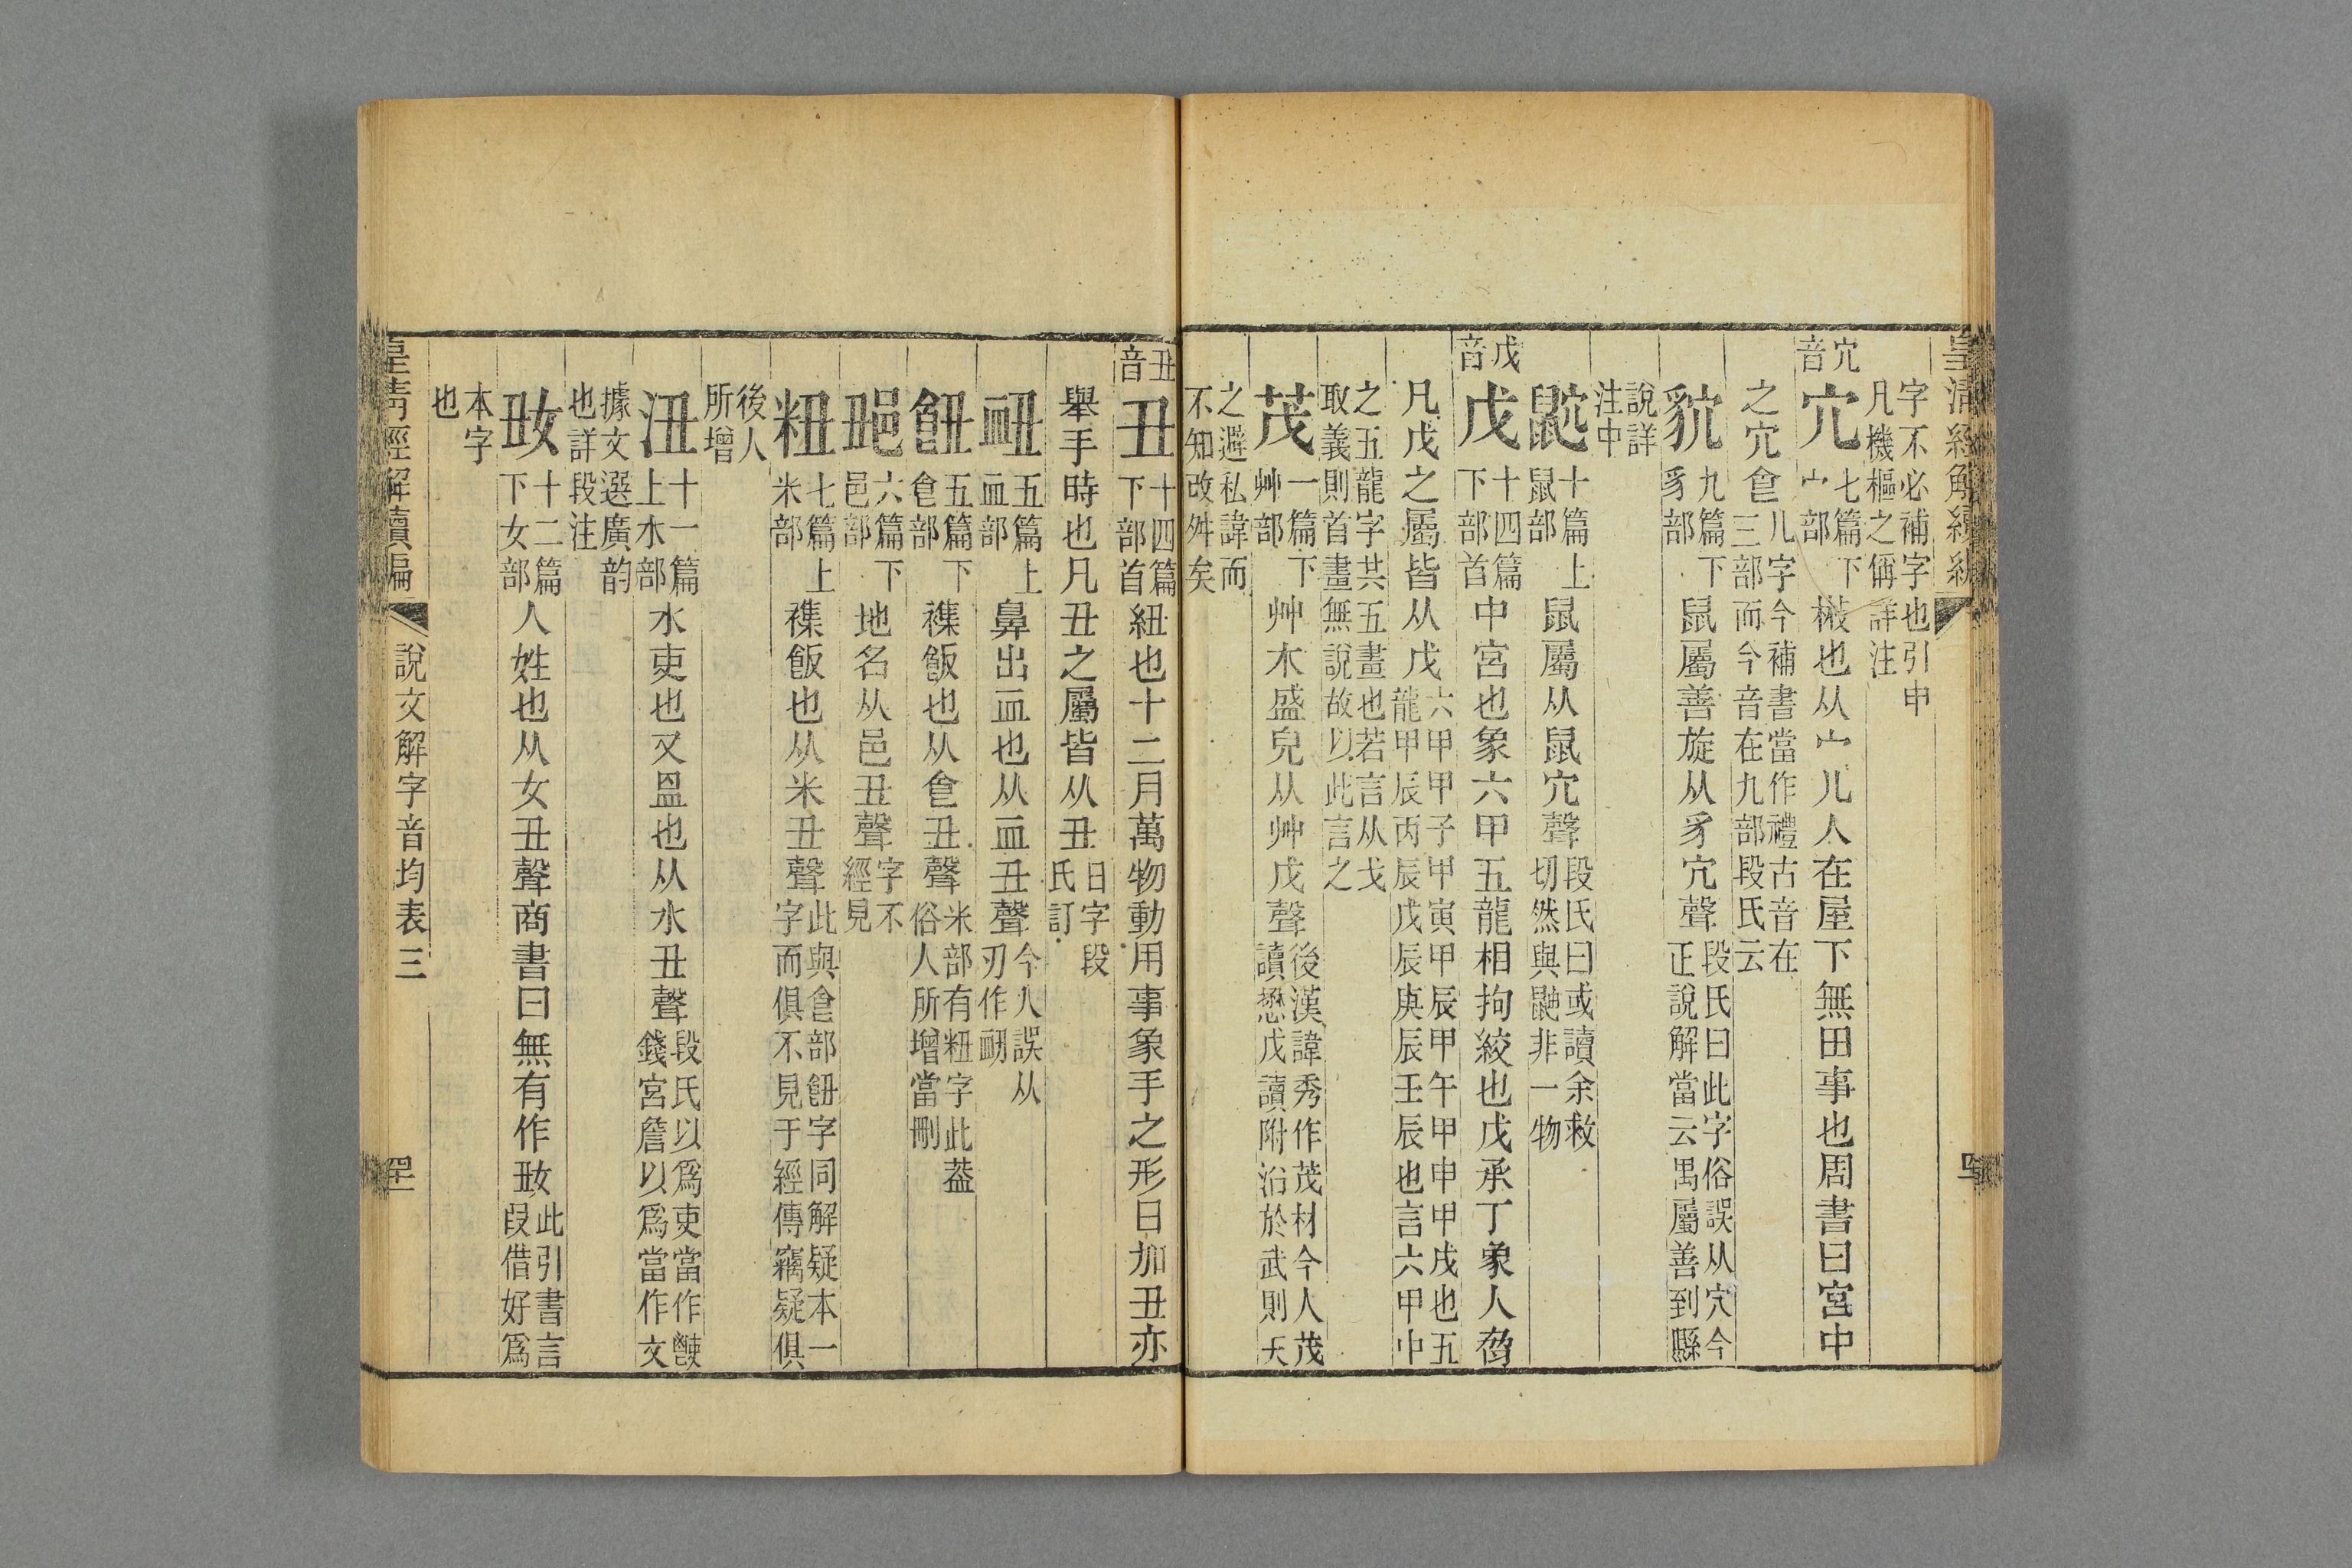 皇清經解續編
字不必補字也引申
凡機樞之偁詳注
宂音
宂 七篇下宀部 㪔也从宀儿人在屋下無田事也周書曰宮中
之宂𠊊儿字今補書當作禮古音在
三部而今音在九部段氏云
貁 九篇下豸部 鼠屬善旋从豸宂聲 段氏曰此字俗誤从穴今
正說解當云禺屬善到縣
說詳
注中
鼨 十篇上鼠部 鼠屬从鼠宂聲 段氏曰或讀余救
切然與鼬非一物
戊音
戊 十四篇下部首 中宮也象六甲五龍相拘絞也戊承丁象人脅
凡戊之屬皆从戊 六甲甲子甲寅甲辰甲午甲申甲戌也五
龍甲辰丙辰戊辰庚辰壬辰也言六甲中
之五龍字共五畫也若言从戈
取義則首畫無說故以此言之
茂 一篇下艸部 艸木盛皃从艸戊聲 後漢諱秀作茂材今人茂
讀懋戊讀附沿於武則天
之避私諱而
不知改舛矣
丑音
丑 十四篇下部首 紐也十二月萬物動用事象手之形日加丑亦
舉手時也凡丑之屬皆从丑 日字段
氏訂
衄 五篇上血部 鼻出血也从血丑聲 今人誤从
刃作衂
飷 五篇下𠊊部 襍飯也从𠊊丑聲 米部有粈字此葢
俗人所增當刪
䢇 六篇下邑部 地名从邑丑聲 字不
經見
粈 七篇上米部 襍飯也从米丑聲 此與𠊊部飷字同解疑本一
字而俱不見于經傳竊疑俱
後人
所增
沑 十一篇上水部 水吏也又𥁕也从水丑聲 段氏以爲吏當作㪥
錢宮詹以爲當作文
據文選廣韵
也詳段注
㚼 十二篇下女部 人姓也从女丑聲商書曰無有作㚼 此引書言
叚借好爲
本字
也
皇淸經解續編
說文解字音均表三